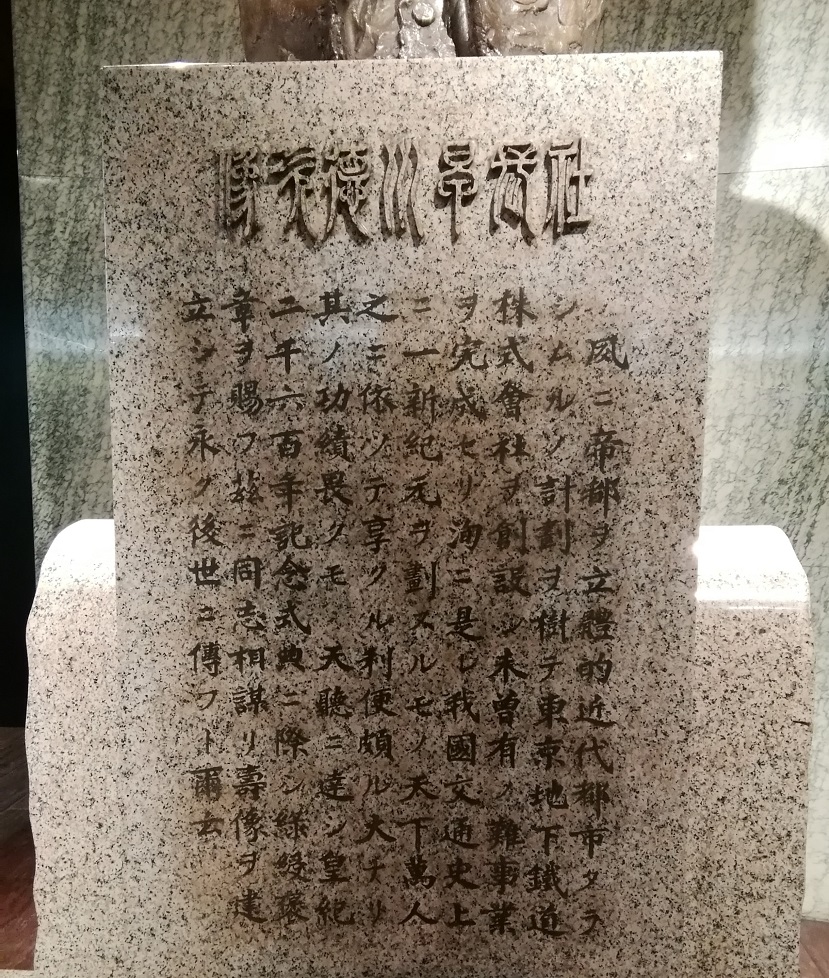 社長早川德次像
夙ニ帝都ヲ立體的近代都市タラ
シムルノ計劃ヲ樹テ東京地下鐵道
株式會社ヲ創設シ未曽有ノ難事業
ヲ完成セリ洵ニ是レ我國交通史上
ニ一新紀元ヲ劃スルモノ天下萬人
之ニ依ツテ享クル利便頗ル大ナリ
其ノ功績畏クモ　天聽ニ達シ皇紀
二千六百年記念式典ニ際シ綠綬褒
章ヲ賜フ茲ニ同志相謀リ壽像ヲ建
立シテ永ク後世ニ傳フト爾云